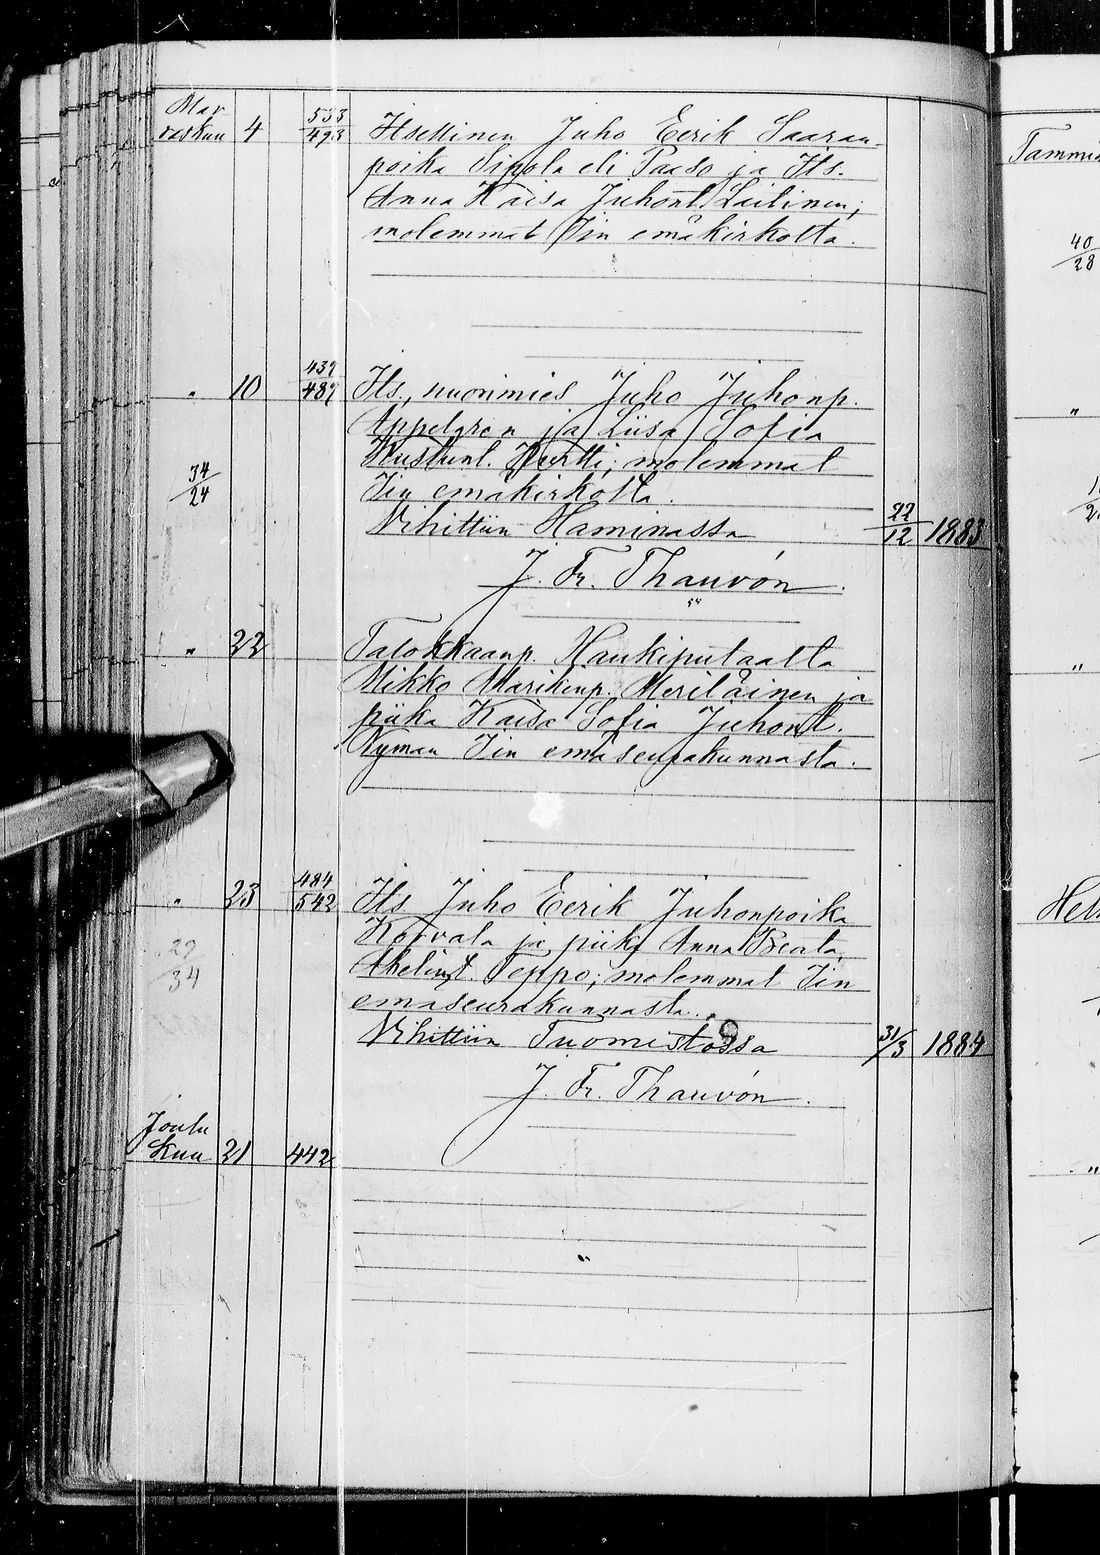 Mar
raskuu 4 553/493 Itsellinen Juho Eerik Saaran-
poika Sipola eli Paaso ja Its.
Anna Kaisa Juhont. Laitinen;
molemmat Iin emäkirkolta.
" 10 439/489 Its., nuorimies Juho Juhonp.
Appelgren ja Liisa Sofia
Kustunt. Kurtti; molemmat
34/24 Iin emäkirkolta.
Vihittiin Haminassa 22/12 1883
J. Fr. Thauvón.
" 22 Talokkaanp. Haukiputaalta
Mikko Marikenp. Meriläinen ja
piika Kaisa Sofia Juhont.
Nyman Iin emäseurakunnasta.
" 23 484/542 Its. Juho Eerik Juhonpoika
29/34 Korvala ja piika Anna Beata
Abelint. Teppo; molemmat Iin
emäseurakunnasta.
Vihittiin Tuomistossa 31/3 1884
J. Fr. Thauvón.
Joulu
kuu 21 442
"
Tammi
40/28
"
"
Hel
"